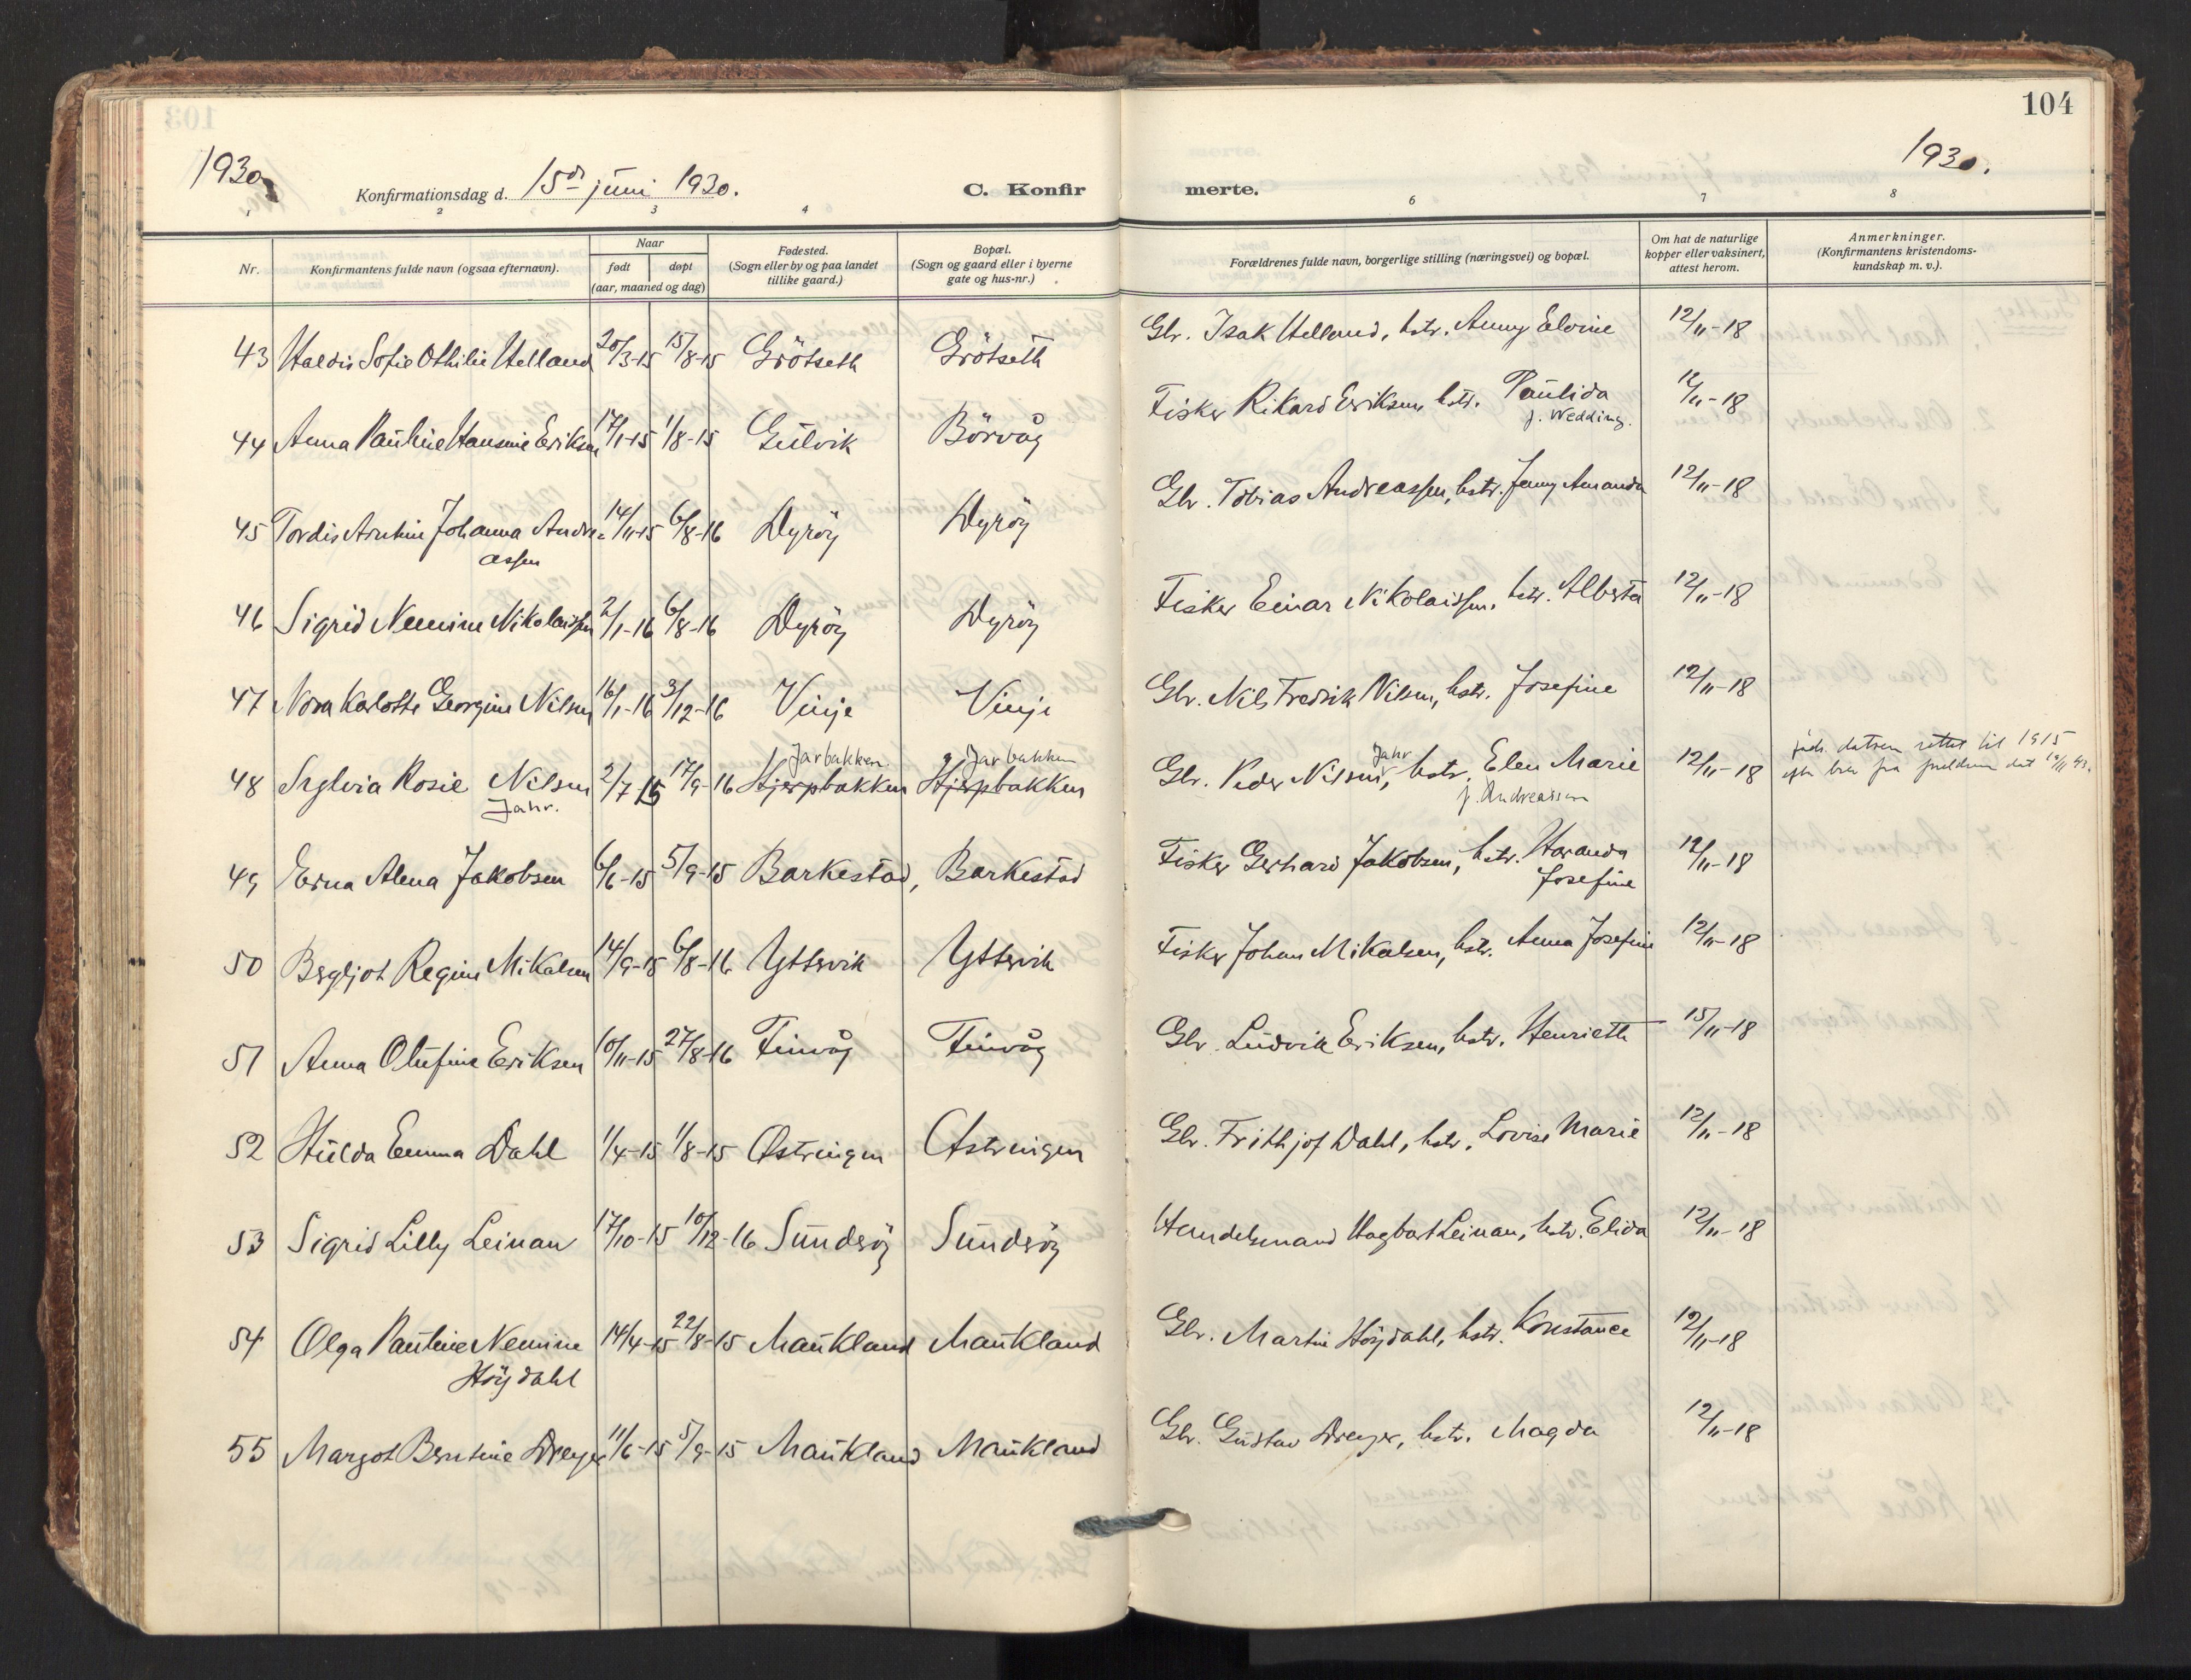 104
1930.
1930.
Konfirmationsdag d. 15de juni 1930. C. Konfir merte.
2 3 4 6 7 8
Nr. Konfirmantens fulde navn (ogsaa efternavn).
Naar
født døpt
(aar, maaned og dag)
Fødested.
(Sogn eller by og paa landet
tillike gaard.)
Bopæl.
(Sogn og gaard eller i byerne
gate og hus-nr.)
Forældrenes fulde navn, borgerlige stilling (næringsvei) og bopæl.
Om hat de naturlige
kopper eller vaksinert,
attest herom.
Anmerkninger.
(Konfirmantens kristendoms-
kundskap m. v.).
43 Haldis Sofie Othilie Helland 20/3-15 15/8-15 Grötseth Grötseth Gbr. Isak Helland, hstr. Anny Elvine 12/11-18
44 Anna Pauline Hansine Eriksen 17/1-15 1/8-15 Gulvik Börvåg Fisker Rikard Eriksen, hstr. Paulida 12/11-18
f. Wedding.
45 Tordis Arntine Johanna Andre= 14/11-15 6/8-16 Dyröy Dyröy Gbr. Tobias Andreassen, hstr. Jenny Amanda 12/11-18
assen
46 Sigrid Nemine Nikolaissen 2/1-16 6/8-16 Dyröy Dyröy Fisker Einar Nikolaissen, hstr. Alberta 12/11-18
47 Nora Karlotte Georgine Nilsen 16/1-16 3/12-16 Vinje Vinje Gbr. Nils Fredrik Nilsen, hstr. Josefine 12/11-18
Jarbakken. Jarbakken Jahr føds. datoen rettet til 1915
48 Sylvia Rosie Nilsen 2/7-15 17/9-16 Stjerpbakken Stjerpbakken Gbr. Peder Nilsen, hstr. Elen Marie 12/11-18
Jahr. f. Andreassen
49 Erna Alena Jakobsen 6/6-15 5/9-15 Barkestad, Barkestad Fisker Gerhard Jakobsen, hstr. Haranda 12/11-18
Josefine
50 Bergljot Regine Mikalsen 14/9-15 6/8-16 Yttervik Yttervik Fisker Johan Mikalsen, hstr. Anna Josefine 12/11-18
51 Anna Olufine Eriksen 10/11-15 27/8-16 Finvåg Finvåg Gbr. Ludvik Eriksen, hstr. Henriette 15/11-18
52 Hulda Emma Dahl 1/4-15 1/8-15 Østringen Østringen Gbr. Frithjof Dahl, hstr. Lovise Marie 12/11-18
53 Sigrid Lilly Leinan 17/10-15 10/12-16 Sunderöy Sunderöy Handelsmand Hagbart Leinan, hstr. Elida 12/11-18
54 Olga Pauline Nemine 14/4-15 22/8-15 Maukland Maukland Gbr. Martin Höydahl, hstr. Konstance 12/11-18
Höydahl
55 Margot Berntine Dreyer 11/6-15 5/9-15 Maukland Maukland Gbr. Gustav Dreyer, hstr. Magda 12/11-18